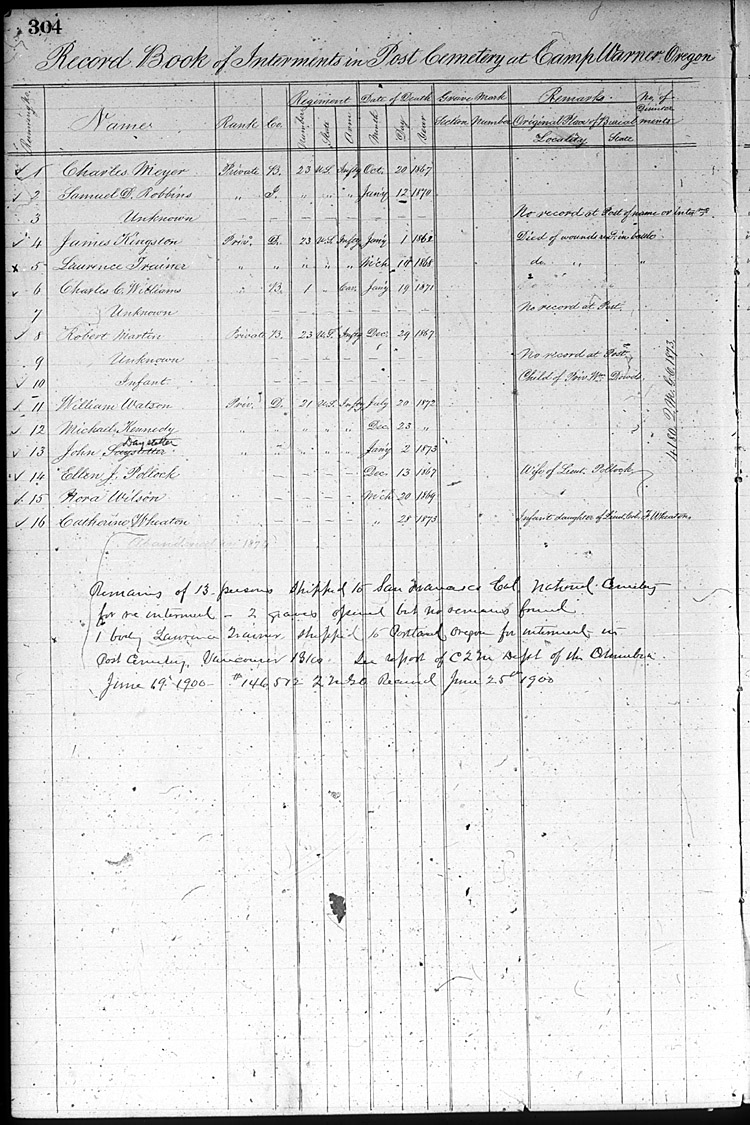 304
Record Book of Interments in Post Cemetery at Camp Warner, Oregon
Regiment Date of Death Grave Mark Remarks No. of
Name Rank Co. Number State Arm Month Day Year Section Number Original Place of Burial
Locality State
1 Charles Meyer Private B. 23 U.S. Infty Oct. 20 1867
2 Samuel D. Robbins " I. " " " Jany 12 1870
3 Unknown — — — — — — — — No record at Post of name or
4 James Kingston Priv. D. 23 U.S. Infty Jany 1 1868 Died of wounds in battle
5 Laurence Trainer " " " " " Mch 14 1868 do " "
6 Charles C. Williams " B. 1 " Cav. Jany 19 1871
7 Unknown — — — — — — — — No record at Post.
8 Robert Martin Private B. 23 U.S. Infty Dec. 29 1867
9 Unknown — — — — — — — — No record at Post
10 Infant — — — — — — — — Child of Priv. Wm
11 William Watson Priv. D. 21 U.S. Infty July 20 1872
12 Michael Kennedy " " " " " Dec. 23 "
Daystotter
13 John " " " " " Jany 2 1873
14 Ellen J. Pollock — — — — — Dec. 13 1867 Wife of Lieut. Pollock
15 Flora Wilson — — — — — Mch 20 1869
16 Catharine Wheaton — — — — — " 28 1873 Infant daughter of Lieut. Col. F. Wheaton,
4180 Q.M.G.O. 1873
Abandoned in
Remains of 13 persons shipped to San Francisco Cal National Cemetery
for re interment — 2 graves opened but no remains found
1 body Laurence Trainer, shipped to Portland Oregon for interment in
Post Cemetery, Vancouver Bks. See report of C Q M Dept of the Columbia
June 19" 1900 — 146572 Q M G O Received June 25th 1900